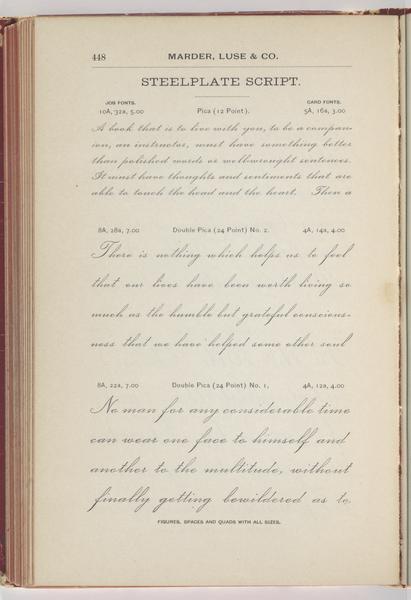 448
MARDER, LUSE & CO.
STEELPLATE SCRIPT.
JOB FONTS.
CARD FONTS.
10A, 32a, 5.00
Pica (12 Point).
5A, 16a, 3.00
A book that is to live with you, to be a compan-
ion, an instructor, must have something better
than polished words or wellwrought sentences.
It must have thoughts and sentiments that are
able to touch the head and the heart. Then a
8A, 28a, 7.00
Double Pica (24 Point) No. 2.
4A, 14a, 4.00
There is nothing which helps us to feel
that our lives have been worth living so
much as the humble but grateful conscious-
ness that we have helped some other soul
8A, 22a, 7.00
Double Pica (24 Point) No. 1,
4A, 12a, 4.00
No man for any considerable time
can wear one face to himself and
another to the multitude, without
finally getting bewildered as to
FIGURES, SPACES AND QUADS WITH ALL SIZES.